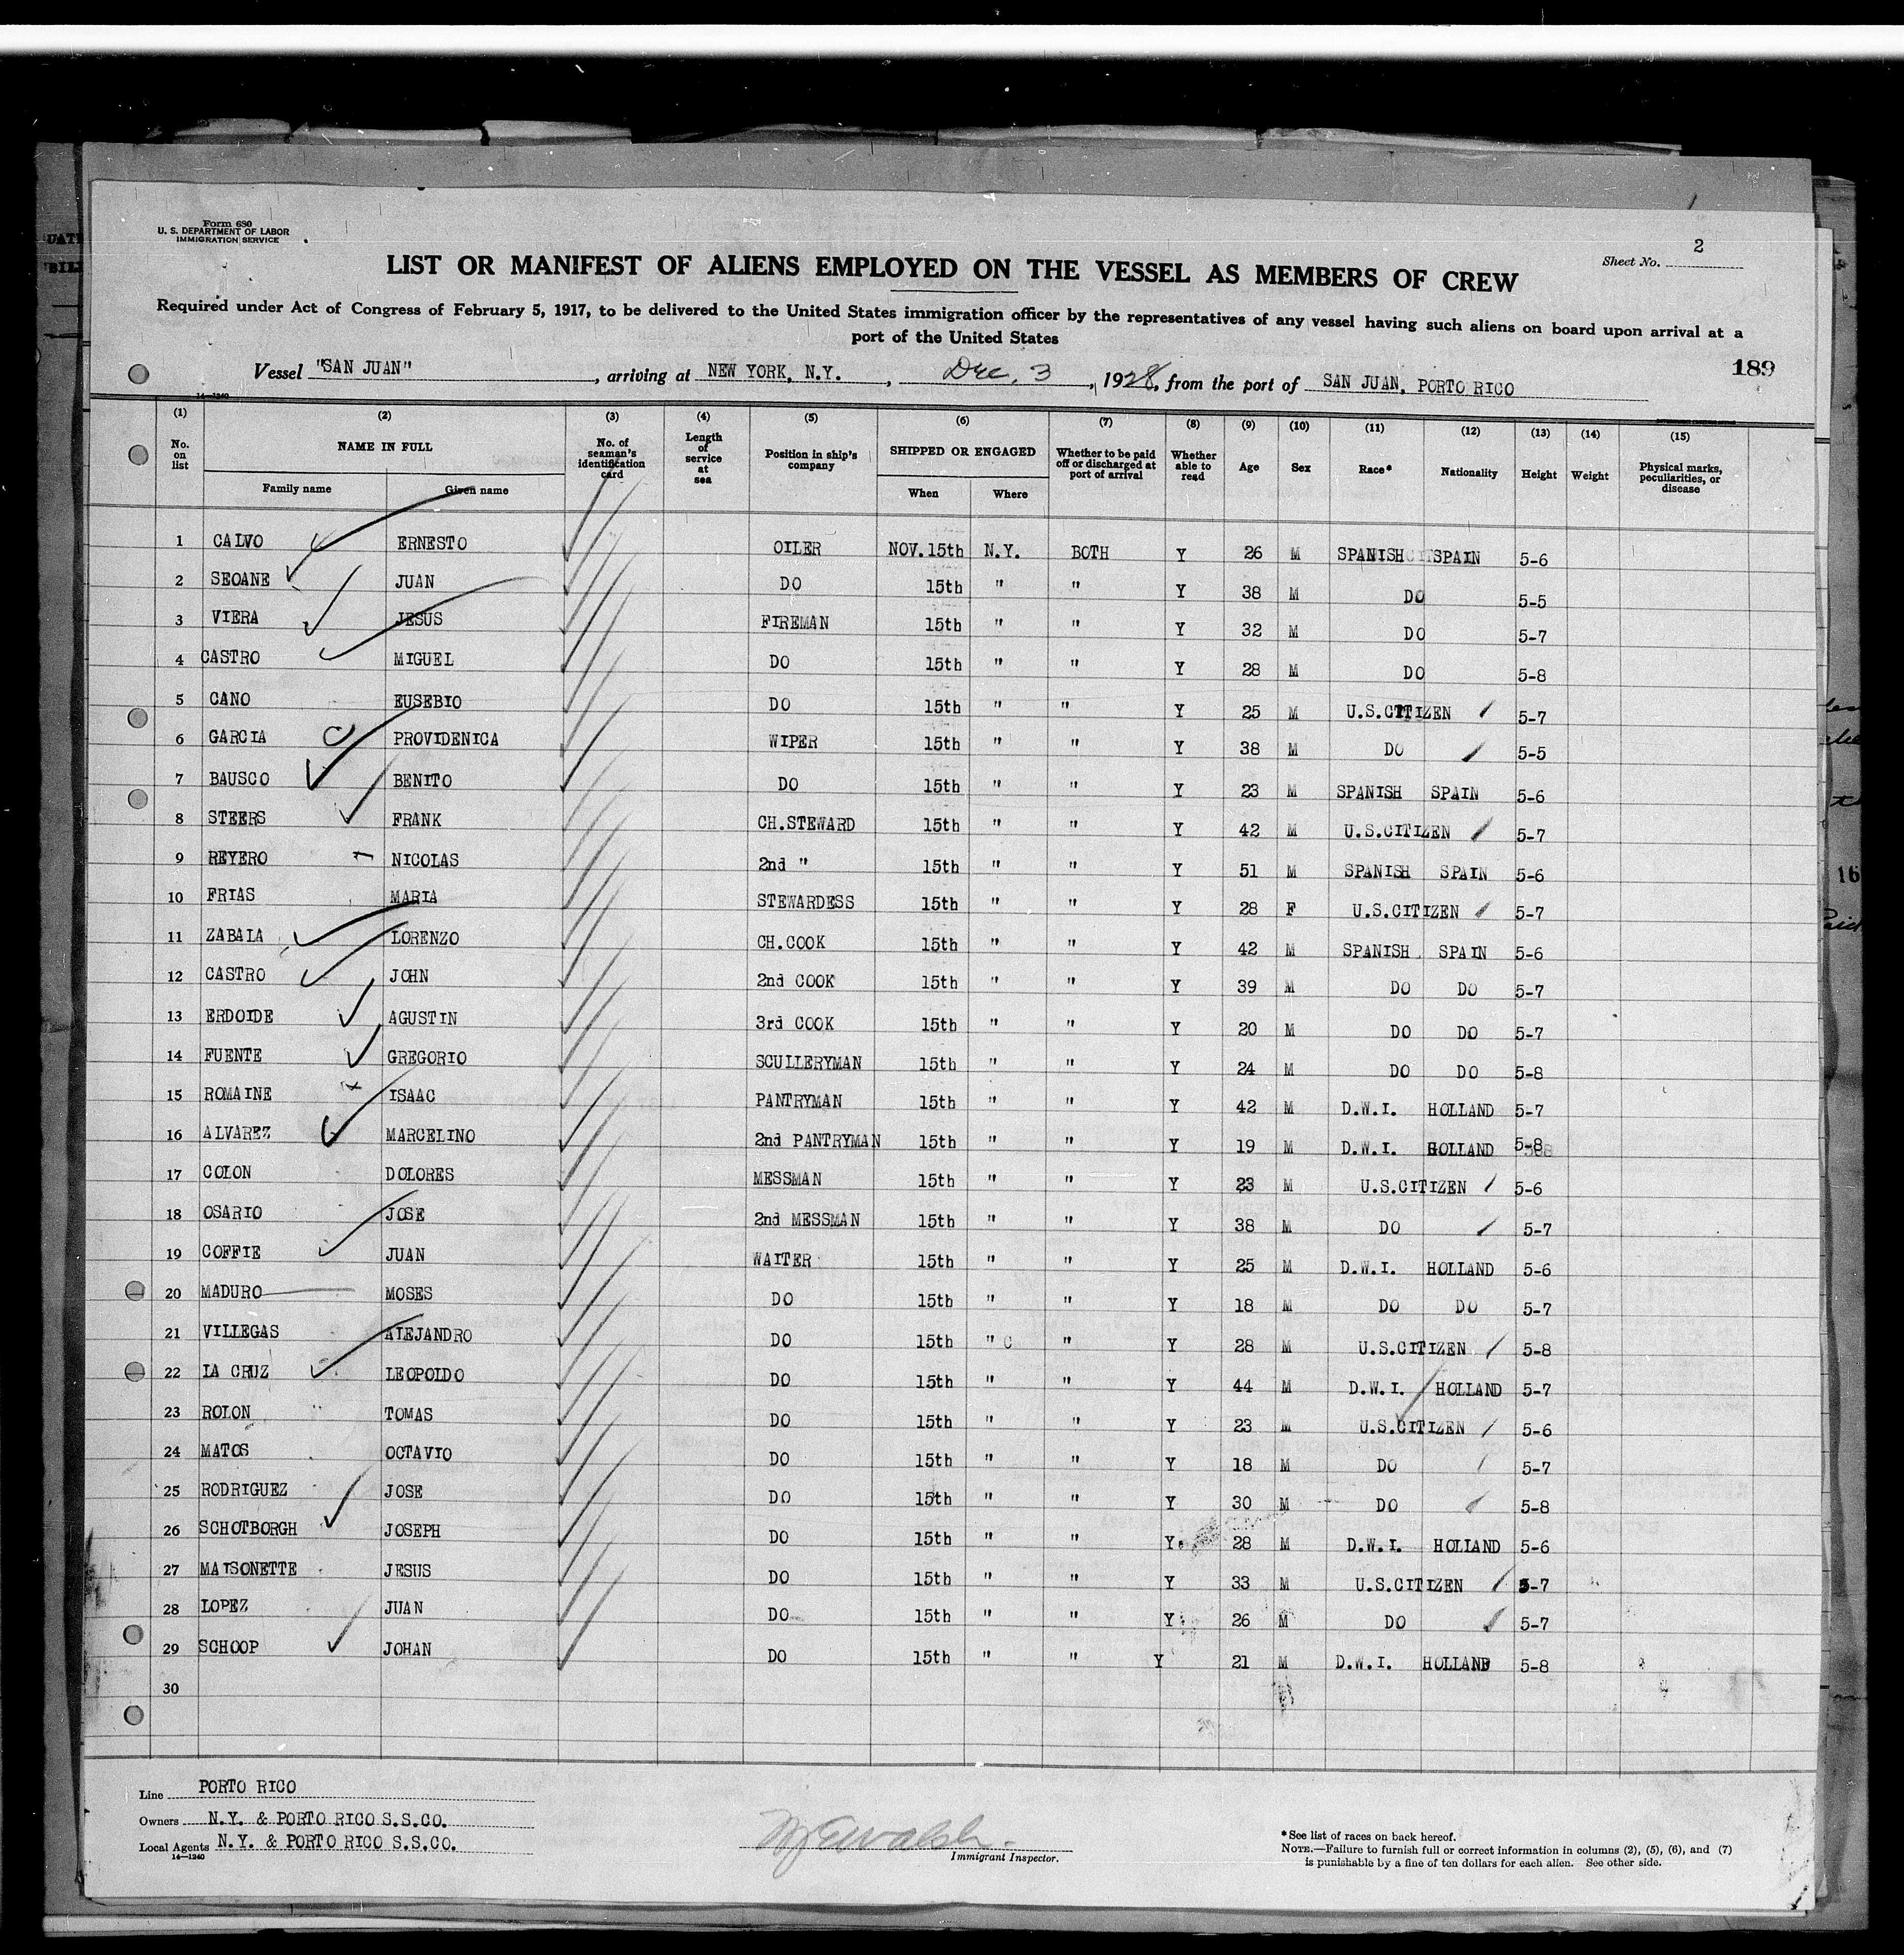 Form 680
U. S. DEPARTMENT OF LABOR
IMMIGRATION SERVICE
Sheet No. 2
LIST OR MANIFEST OF ALIENS EMPLOYED ON THE VESSEL AS MEMBERS OF CREW
Required under Act of Congress of February 5, 1917, to be delivered to the United States immigration officer by the representatives of any vessel having such aliens on board upon arrival at a
port of the United States
189
Vessel "SAN JUAN", arriving at NEW YORK, N.Y., Dec. 3, 1928, from the port of SAN JUAN, PORTO RICO
14—1240
(1) (2) (3) (4) (5) (6) (7) (8) (9) (10) (11) (12) (13) (14) (15)
No. on list NAME IN FULL No. of seaman's identification card Length of service at sea Position in ship's company SHIPPED OR ENGAGED Whether to be paid off or discharged at port of arrival Whether able to read Age Sex Race* Nationality Height Weight Physical marks, peculiarities, or disease
Family name Given name When Where
1 CALVO ERNESTO OILER NOV.15th N.Y. BOTH Y 26 M SPANISH SPAIN 5-6
2 SEOANE JUAN DO 15th " " Y 38 M DO 5-5
3 VIERA JESUS FIREMAN 15th " " Y 32 M DO 5-7
4 CASTRO MIGUEL DO 15th " " Y 28 M DO 5-8
5 CANO EUSEBIO DO 15th " " Y 25 M U.S.CITIZEN 5-7
6 GARCIA PROVIDENICA WIPER 15th " " Y 38 M DO 5-5
7 BAUSCO BENITO DO 15th " " Y 23 M SPANISH SPAIN 5-6
8 STEERS FRANK CH.STEWARD 15th " " Y 42 M U.S.CITIZEN 5-7
9 REYERO NICOLAS 2nd " 15th " " Y 51 M SPANISH SPAIN 5-6
10 FRIAS MARIA STEWARDESS 15th " " Y 28 F U.S.CITIZEN 5-7
11 ZABALA LORENZO CH.COOK 15th " " Y 42 M SPANISH SPAIN 5-6
12 CASTRO JOHN 2nd COOK 15th " " Y 39 M DO DO 5-7
13 ERDOIDE AGUSTIN 3rd COOK 15th " " Y 20 M DO DO 5-7
14 FUENTE GREGORIO SCULLERYMAN 15th " " Y 24 M DO DO 5-8
15 ROMAINE ISAAC PANTRYMAN 15th " " Y 42 M D.W.I. HOLLAND 5-7
16 ALVAREZ MARCELINO 2nd PANTRYMAN 15th " " Y 19 M D.W.I. HOLLAND 5-8
17 COLON DOLORES MESSMAN 15th " " Y 23 M U.S.CITIZEN 5-6
18 OSARIO JOSE 2nd MESSMAN 15th " " Y 38 M DO 5-7
19 COFFIE JUAN WAITER 15th " " Y 25 M D.W.I. HOLLAND 5-6
20 MADURO MOSES DO 15th " " Y 18 M DO DO 5-7
21 VILLEGAS ALEJANDRO DO 15th " C " Y 28 M U.S.CITIZEN 5-8
22 LA CRUZ LEOPOLDO DO 15th " " Y 44 M D.W.I. HOLLAND 5-7
23 ROLON TOMAS DO 15th " " Y 23 M U.S.CITIZEN 5-6
24 MATOS OCTAVIO DO 15th " " Y 18 M DO 5-7
25 RODRIGUEZ JOSE DO 15th " " Y 30 M DO 5-8
26 SCHOTBORGH JOSEPH DO 15th " " Y 28 M D.W.I. HOLLAND 5-6
27 MAISONETTE JESUS DO 15th " " Y 33 M U.S.CITIZEN 5-7
28 LOPEZ JUAN DO 15th " " Y 26 M DO 5-7
29 SCHOOP JOHAN DO 15th " " Y 21 M D.W.I. HOLLAND 5-8
30
Line PORTO RICO
Owners N.Y. & PORTO RICO S.S.CO.
Local Agents N.Y. & PORTO RICO S.S.CO.
14—1240
Walsh
Immigrant Inspector.
*See list of races on back hereof.
NOTE.—Failure to furnish full or correct information in columns (2), (5), (6), and (7)
is punishable by a fine of ten dollars for each alien. See other side.
16